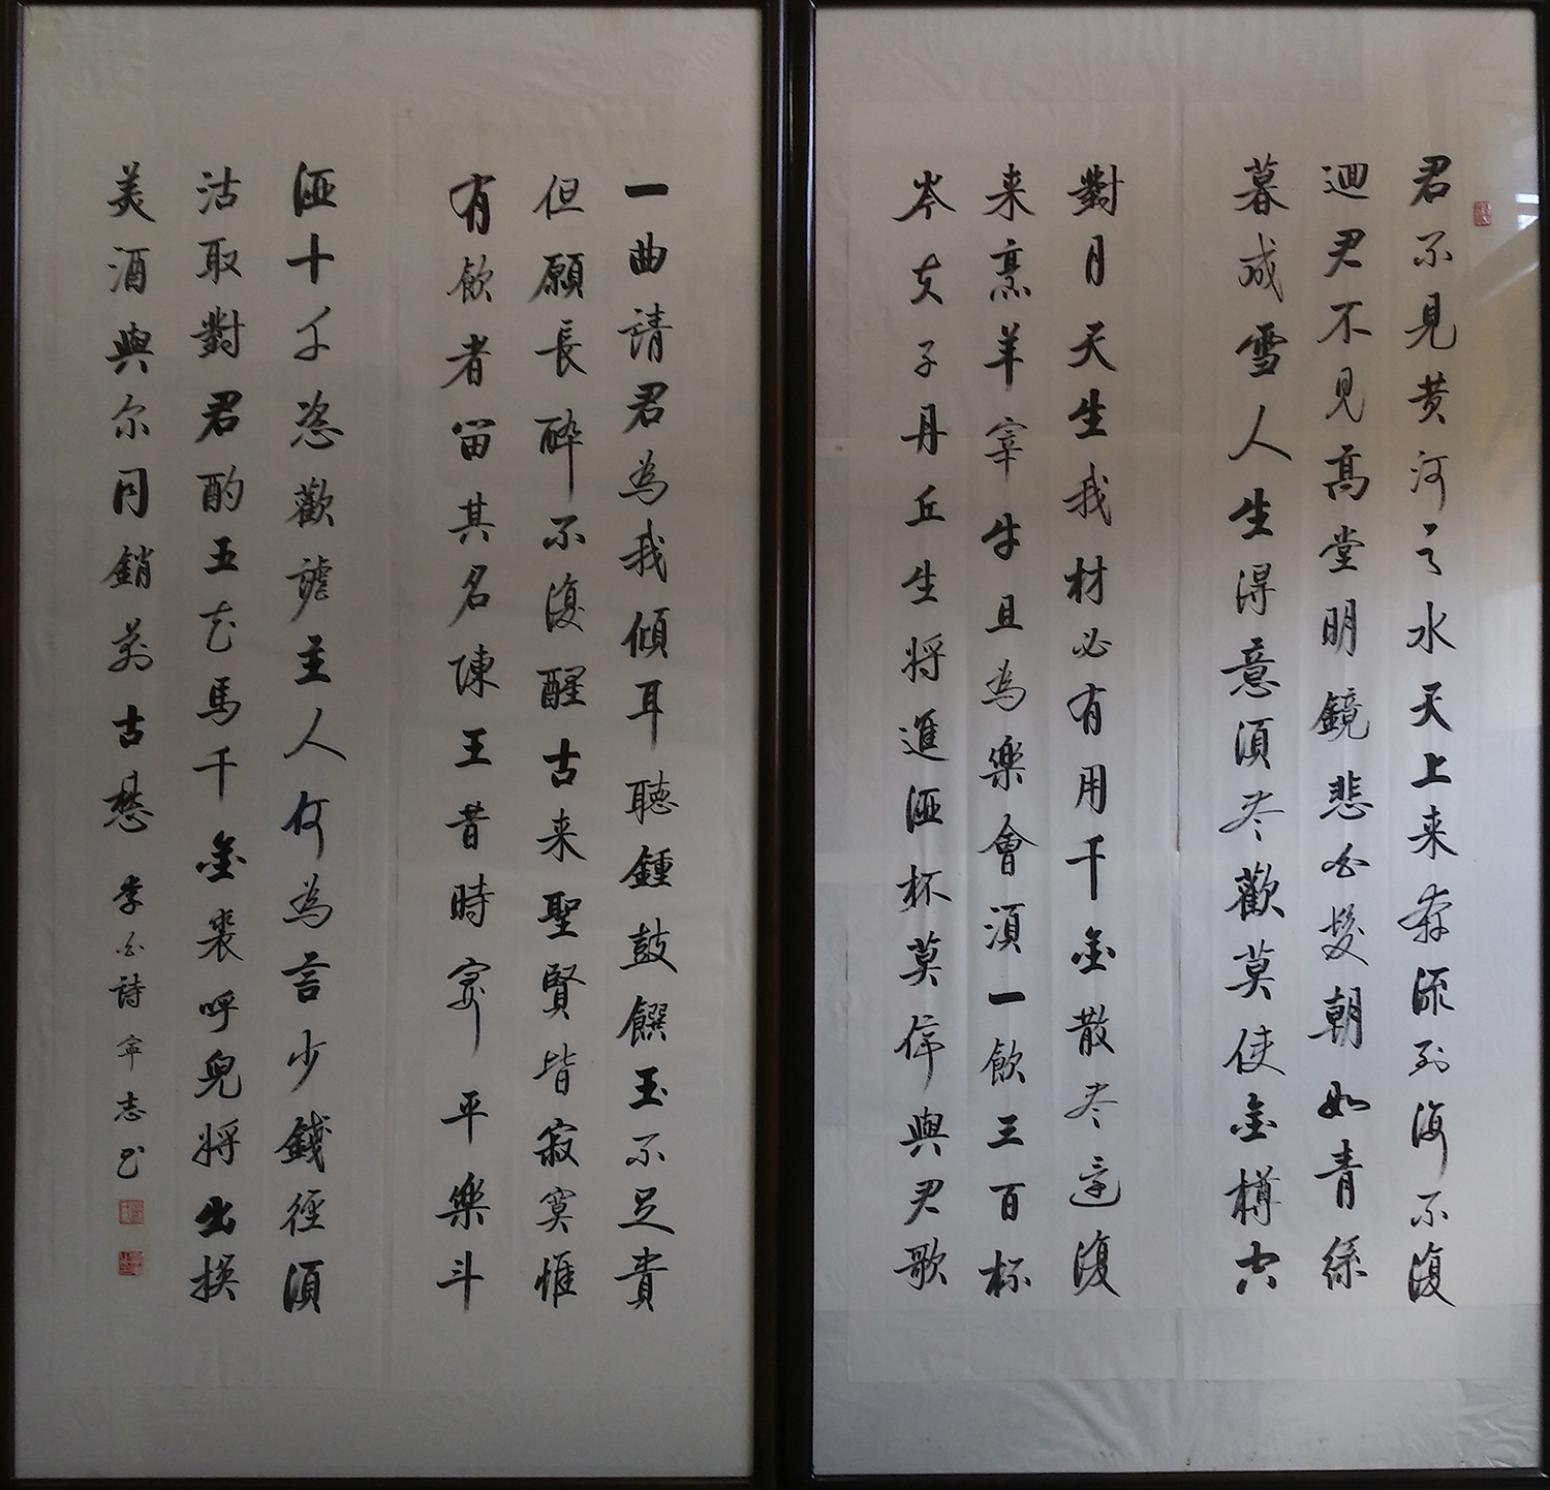 君不見黄河之水天上来奔流到海不復
迴君不見高堂明鏡悲白髮朝如青絲
暮成雪人生得意須尽歡莫使金樽空
對月天生我材必有用千金散尽還復
来烹羊宰牛且為樂會須一飲三百杯
岑夫子丹丘生将進酒杯莫停與君歌
一曲請君為我傾耳聽鍾鼓饌玉不足貴
但願長醉不復醒古来聖賢皆寂寞惟
有飲者留其名陳王昔時宴平樂斗
酒十千恣歡謔主人何為言少錢徑須
沽取對君酌五花馬千金裘呼兒将出换
美酒與尔同銷萬古愁 李白詩 寧志书